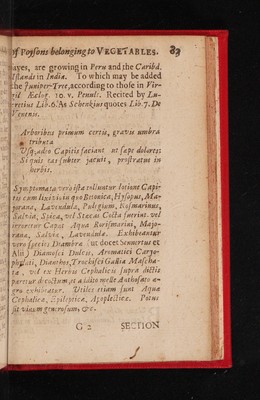 of Poysons belonging to VEGETABLES. 83
ayes, are growing in Peru and the Caribd.
Islands in India. To which may be added
the Juniper-Tree, according to those in Vir-
gil Æclog. 10. v. Penult. Recited by Lu-
cretius Lib. 6. As Schenkius quotes Lib. 7. De
Venenis.
Arboribus primum certis, gravis umbra
tributa
Usq; adeo Capitis faciant ut sæpe dolores
Si quis eas subter jacuit, prostratus in
herbis.
Symptomata vero ista tolluntur lotione Capi-
tis cum lixivio in quo Betonica, Hysopus, Ma-
jorana, Lavendula, Pulegium, Rosmarinus,
Salvia, Spica, vel Stæcas Cocta fuerint. vel
Aqua Rorismarini, Majo-
rana, Salviæ, Lavendulæ. Exhibeantur
vero species Diambræ (ut docet Sennertus et
Alii) Diamosci Dulcis, Aromatici Caryo-
phyllati, Dianthos, Trochisci Gallia Moscha-
ta. vel ex Herbis Cephalicis supra dictis
paretur decoctum, et
exhibeatur. Utiles etiam sunt Aqua
Cephalica, Epileptica, Apoplectica. Potus
sit vinum generosum, &c.
G 2 SECTION